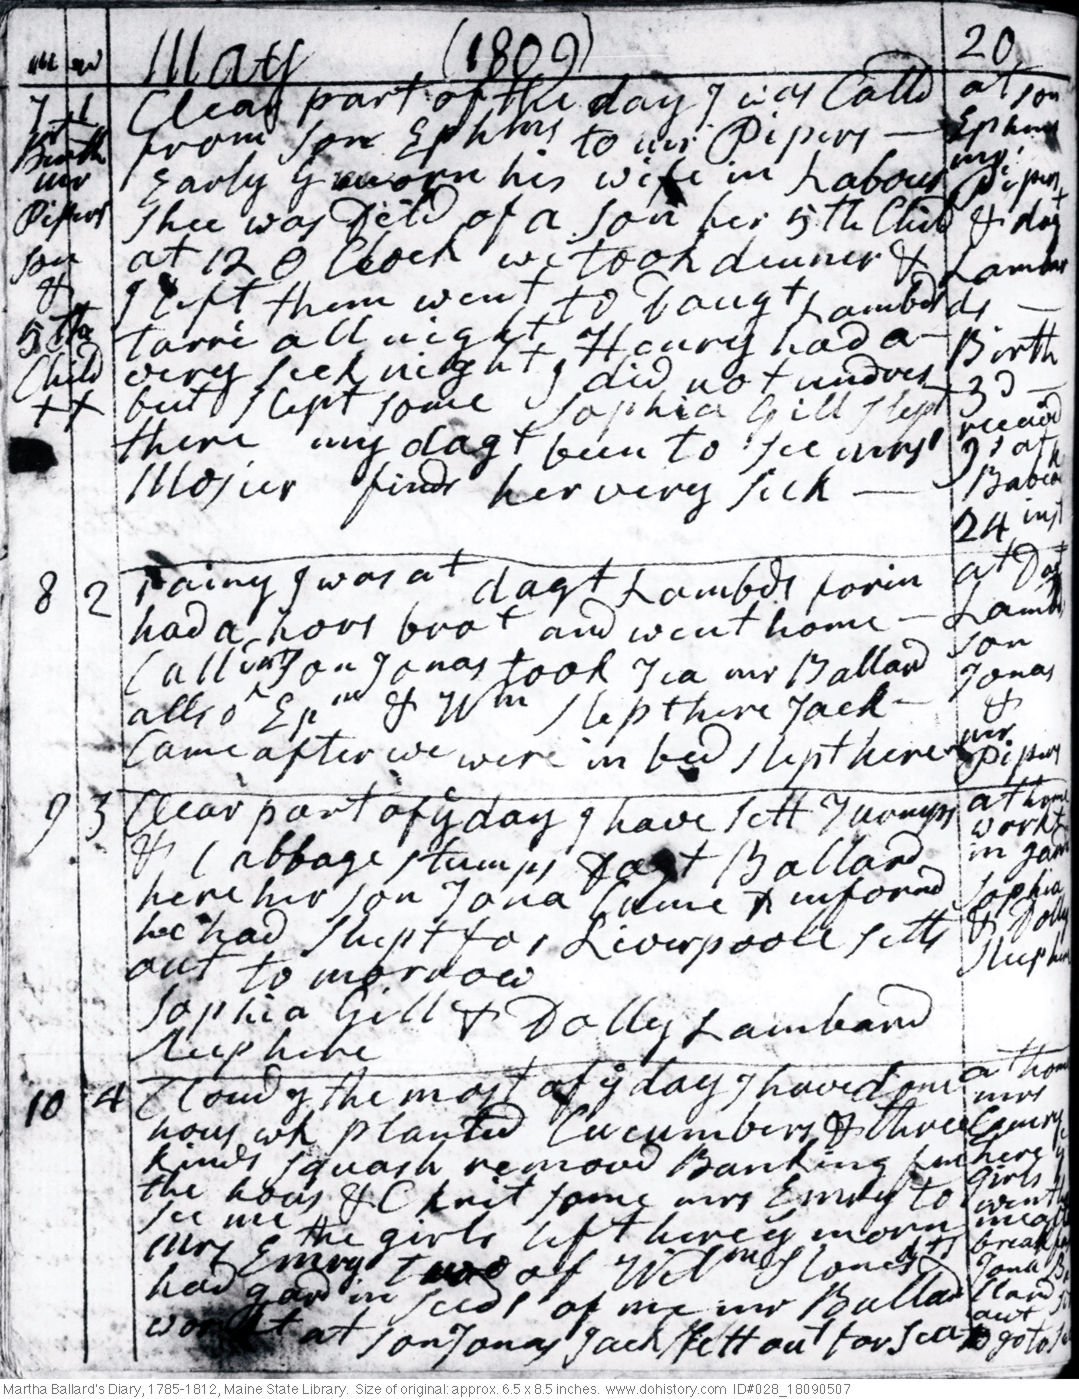 m w May (1809) 20
7 1 Clear part of the day I was Calld
from son Ephms to mr Pipers —
Early Gmorn his wife in Labour
Shee was Deld of a son her 5th Child
at 12 O Clock we took dinner &
I left them went to Daugt Lambds
tarri all night Henry had a
very sick night I did not undres
but slept some Sophia Gill slept
there my dagt been to see mrs
Mosier finds her very sick —
Birth
mr
Pipers
son
&
5th
Child
++
at son
Ephms
mr
Pipers
& dagt
Lambar
ds —
Birth
3d —
receivd
24 inst
8 2 rainy I was at dagt Lambds forin
had a hors brot and went home —
Call int son Jonas took Tea mr Ballard
allso Epm & Wm slept here Jack —
Came after we were in bed slept here
at Dagt
Lambds
son
Jonas
&
mr
Pipers
9 3 Clear part of ÿ day I have sett Turnips
& Cabbage stumps Dagt Ballard
here her son Jona Came & informd
he had shipt for Liverpoole setts
out to morrow
Sophia Gill & Dolly Lambard
sleep here
at home
workt
in gard
Sophia
& Dolly
sleep here
10 4 Cloudy the most of ÿ day I have done
hous wk planted Cucumbers & three
kinds squash removd Banking from
the hous & C knit some mrs Emry to
see me the girls left here ÿ morn
Mrs Emry two of Wilm Stones dts
had gard in seeds of me mr Ballard
workt at son Jonas Jack sett out for sea
at home
mrs
Emry
here ÿ
girls
went
break
Jona Ba
llard
out
to go to
Martha Ballard's Diary, 1785-1812, Maine State Library. Size of original: approx. 6.5 x 8.5 inches. www.dohistory.com ID#028_18090507